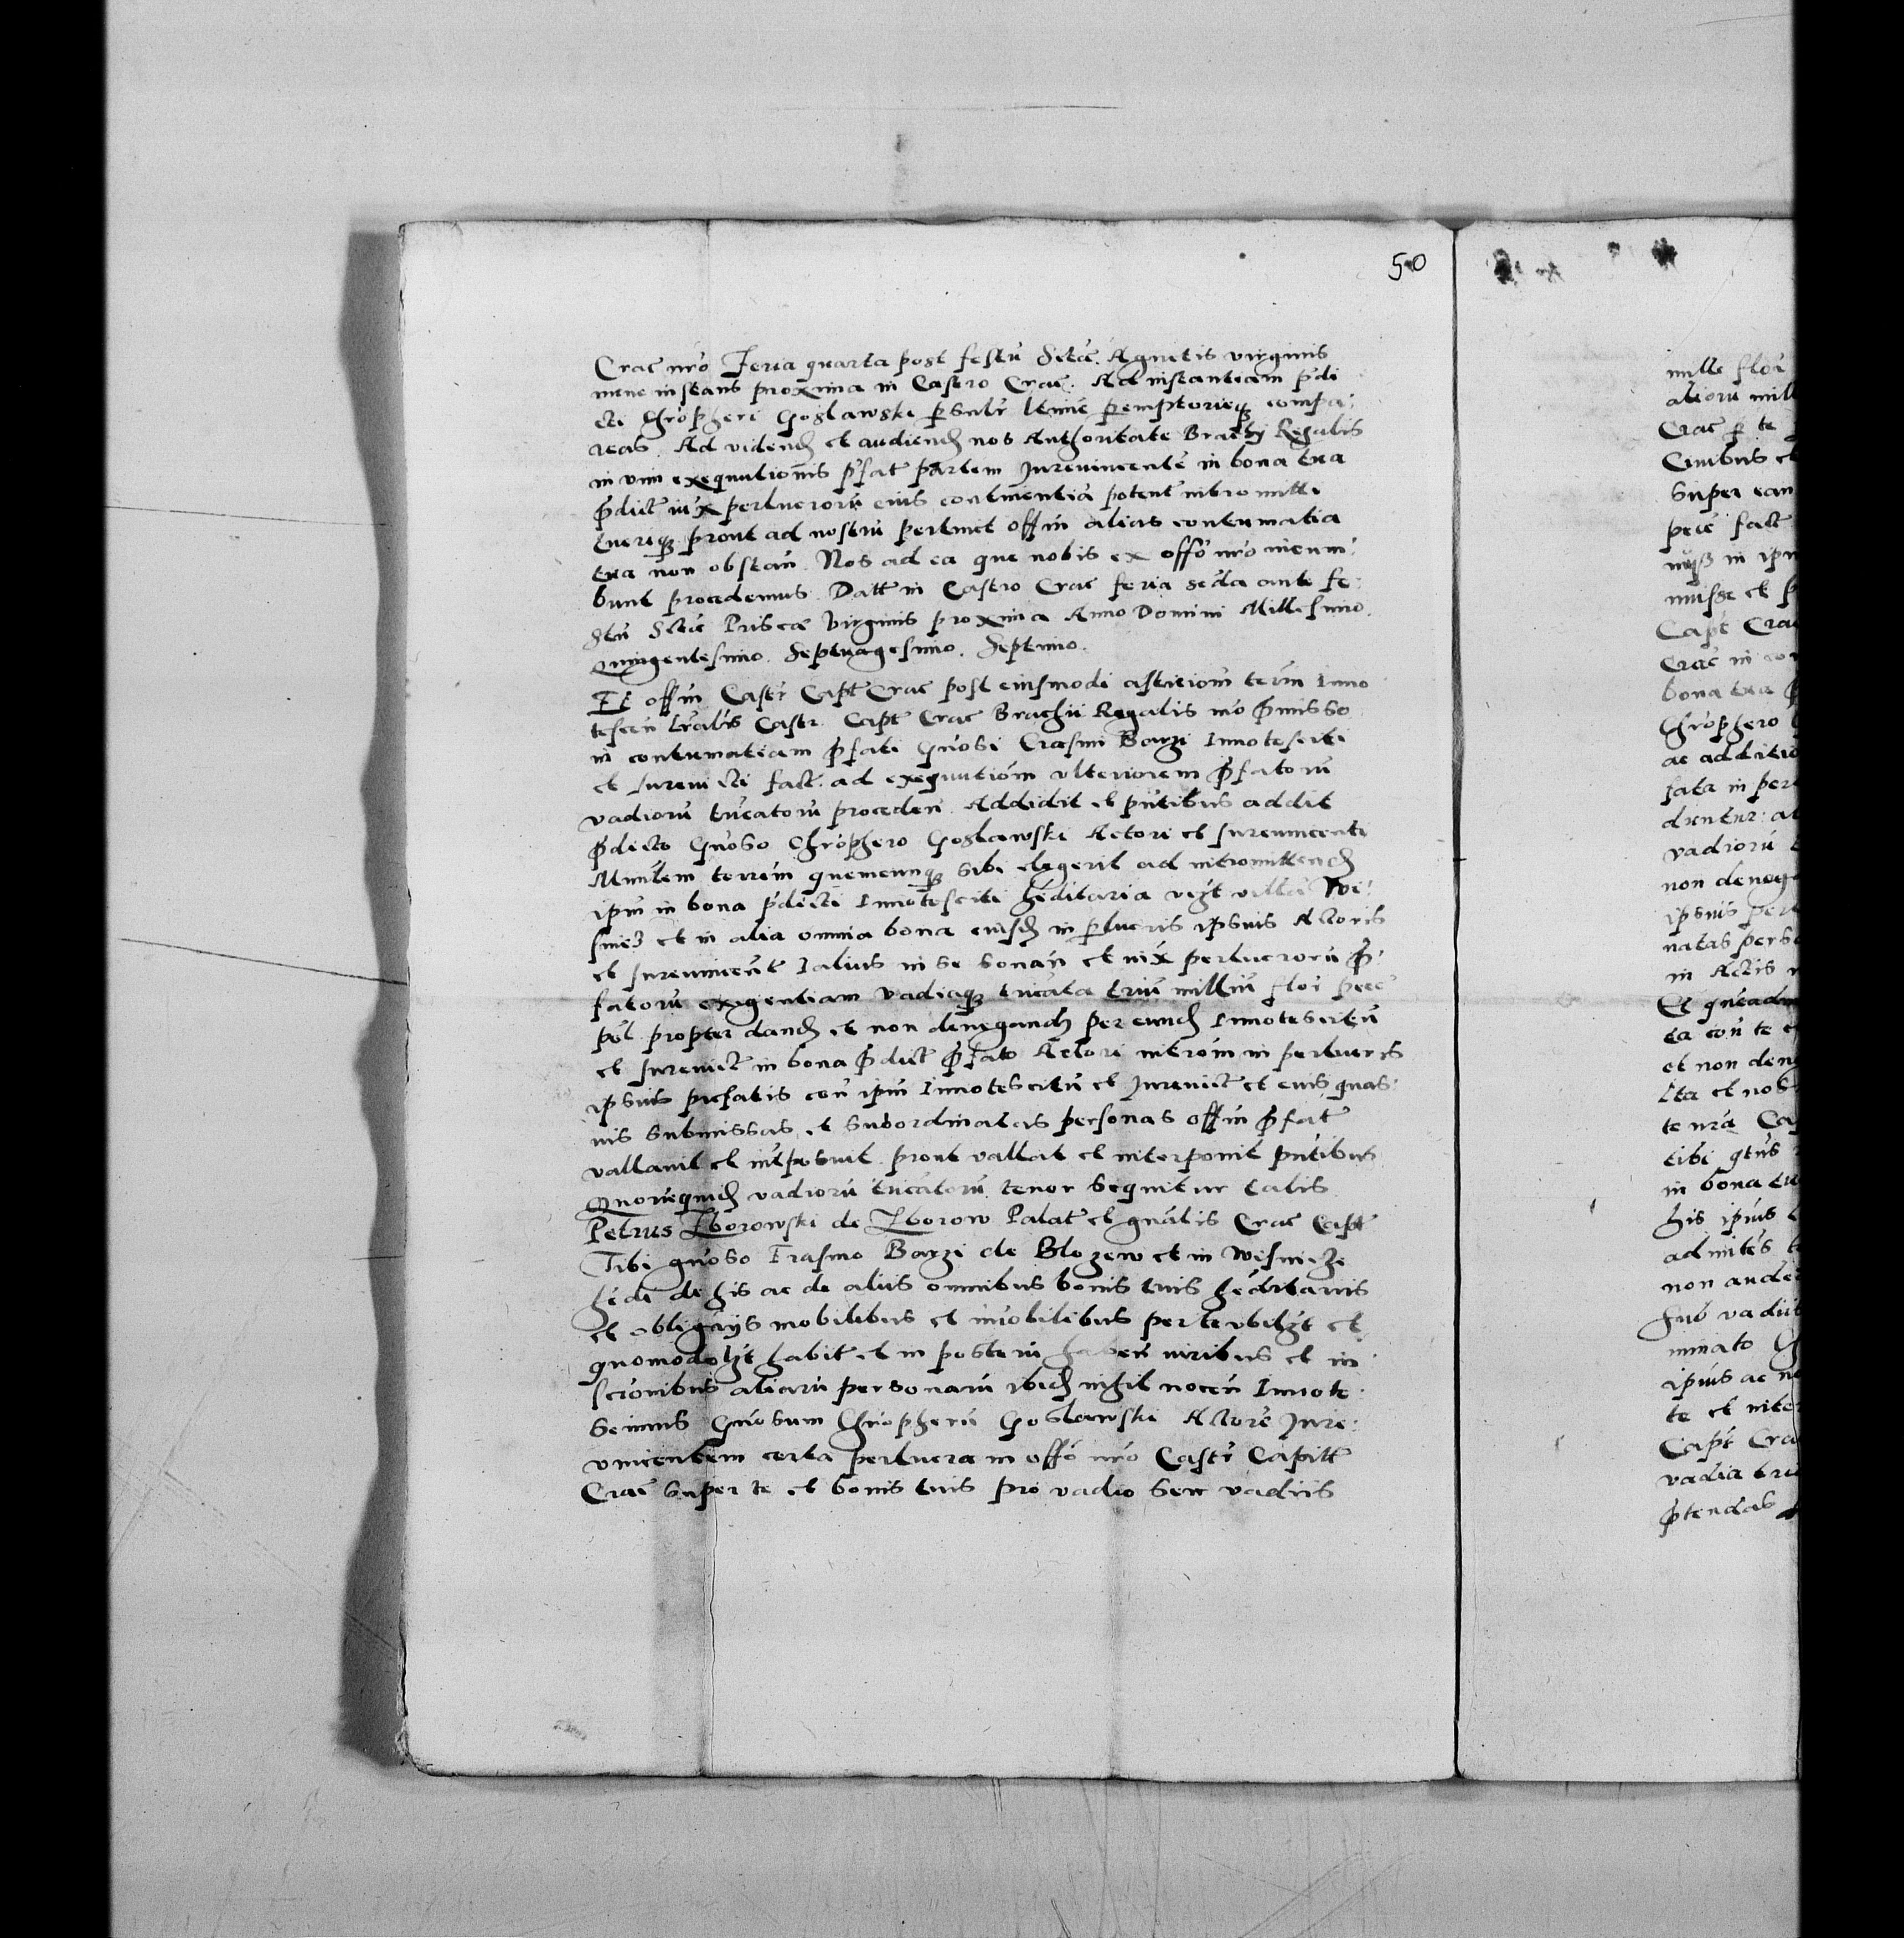 50
Crac nro Feria quarta post festu Sctae Agnetis virginis
nunc instans proxima in Castro Crac. Ad instantiam pdi
cti Chropheri Goslawski psnlr ltime peremptorieq compa:
reas. Ad vidend et audiend nos Authoritate Brachy Regalis
in vim exequutionis pfat partem Jurevincente in bona tua
pdict iux perlucroru eius continentia potent intromitti
tuerique prout ad nostru pertinet offm alias contumatia
tua non obstan. Nos ad ea que nobis ex offo nro incum:
bunt procedemus. Datt in Castro Crac feria scda ante fe:
stu Sctae Priscae Virginis proxima Anno Domini Millesimo
quingentesimo. Septuagesimo. Septimo.
Et offm Castr Capt Crac post eiusmodi astricioni termi Inno
tescen lralis Castr. Capt Crac Brachii Regalis mo pmisso
in contumatiam pfati Gnosi Erasmi Barzi Innotesciti
et Jurevicti fact. ad exequutiom vlteriorem pfatoru
vadioru tucatoru proceden Addidit et pntibus addit
pdicto Gnoso Chrophero Goslawski Actori et Jurevincenti
Mnlem terrm quemcunq sibi elegerit ad intromittend
ipm in bona pdicti Innotesciti heditaria vizt villa Wi:
sniez et in alia omnia bona eiusd in plucris ipsius Actoris
et Jurevincent Latius in se sonan et iux perlucroru p:
fatoru exigentiam Vadiaq tucata triu milliu flor pecc
pol propter dand et non denegand per eund Innotescitu
et Jurevict in bona pdict pfato Actori introm in perlucris
ipsius prefatis con ipm Innotescitu et Jurevict et eius quas:
vis submissas et subordinatas personas offm pfat
vallavit et intposuit prout vallat et interponit pntibus
Quoruquid vadioru tucatoru tenor sequitur talis
Petrus Zborowski de Zborow Palat et gnalis Crac Capt
Tibi gnoso Erasmo Barzi de Blozew et in Wisnicze
hedi de his ac de aliis omnibus bonis tuis heditariis
et obligatys mobilibus et inobilibus per te vbilzt et
quomodolzt habit et in posteru haben iuribus et in
scronibus aliaru personaru ibid nihil nocen Innote:
scimus Gnosum Chropheru Goslawski Actore Jure:
vincentem certa perlucra in offo nro Castr Capitt
Crac super te et bonis tuis pro vadio seu vadiis
mille flor
alioru mill
Crac p te
Civibus et
Super ean
pecc fact
in ipm
misse et p
Capt Crac
Crac in con
bona tua p
Chrophero
ac additio
fata in perl
dientur al
vadioru
non deneg
ipsius perl
natas perso
in Actis
Et quead
ea con te
et non den
Ita et nos
te nra Ca
tibi
in bona tu
his ipius
admites
non aude
sub vadiis
minato
ipius ac ne
te et inte
Capt Cra
vadia tri
ptendas